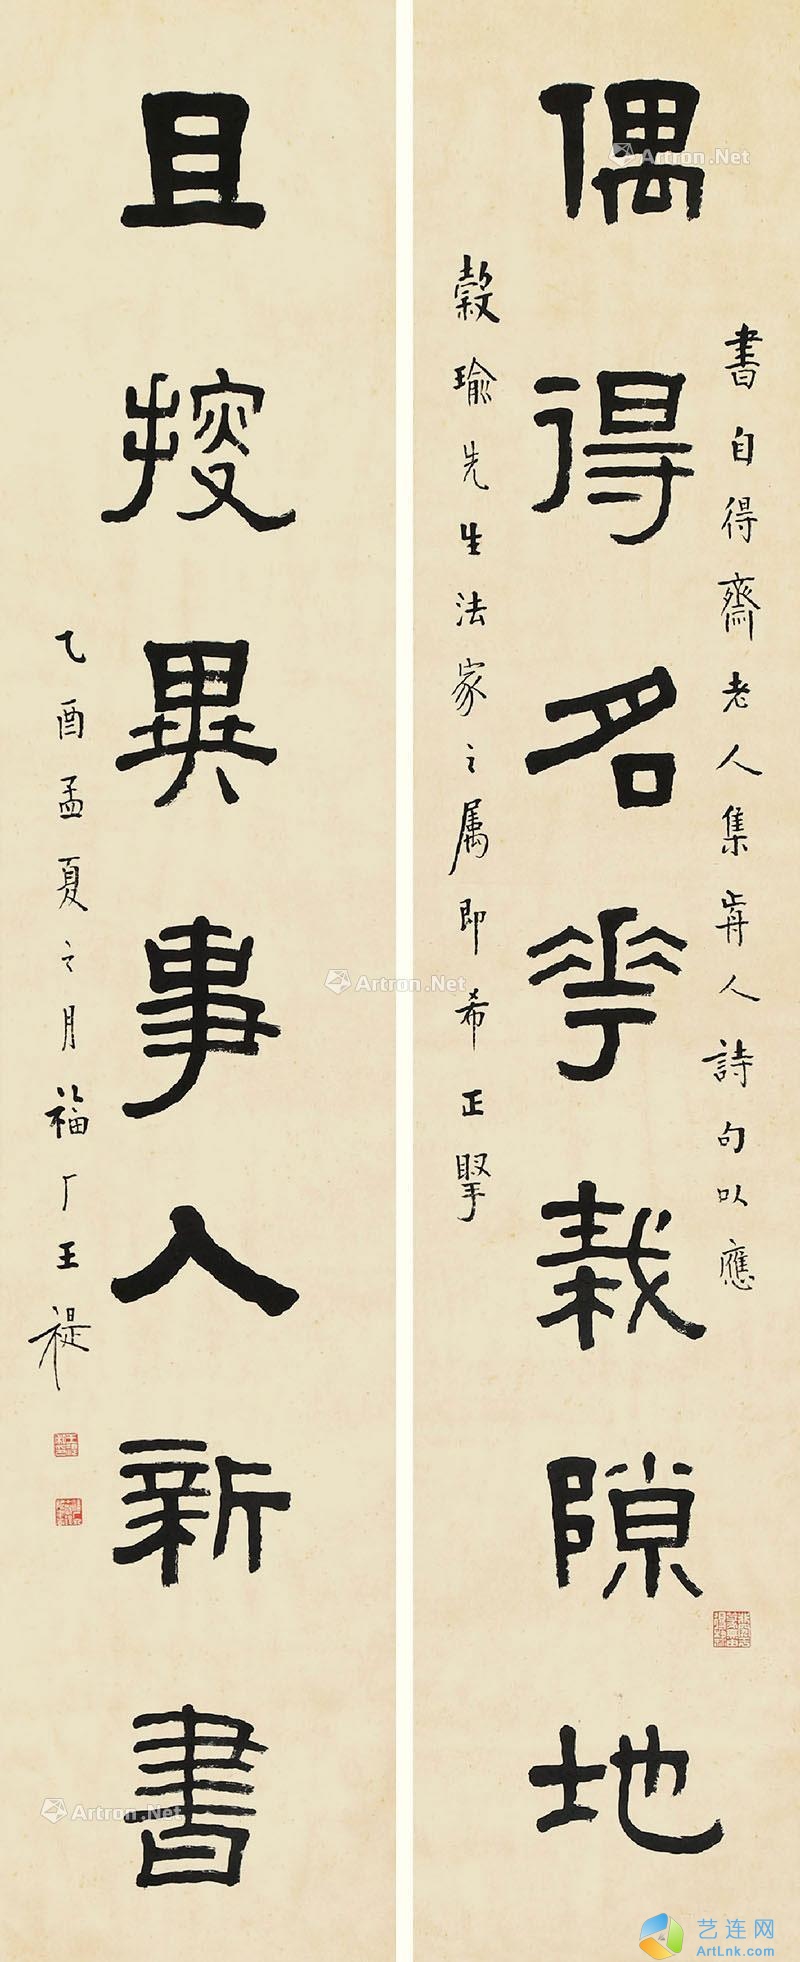 偶得名華栽隙地
書自得齋老人集歬人詩句以應
穀瑜先生法家之属即希正擥
且搜異事入新書
乙酉孟夏之月福厂王禔
Artron.Net
Artron.Net
Artron.Net
艺连网
ArtLnk.com